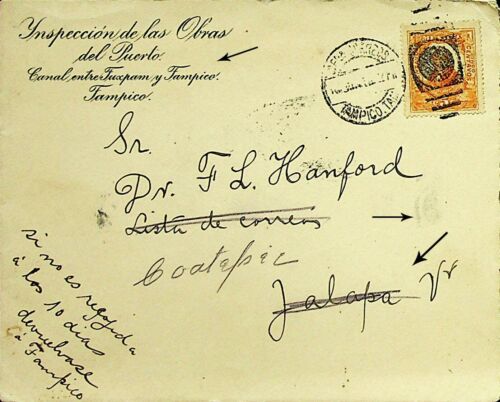 Ynspección de las Obras
del Puerto.
Canal entre Tuxpam y Tampico.
Tampico.
TAMPICO, TAM
Sr.
Dr. F L. Hanford
Lista de correos
Coatepec
Jalapa Vr
si no es recojida
á los 10 dias
devuelvase
á Tampico